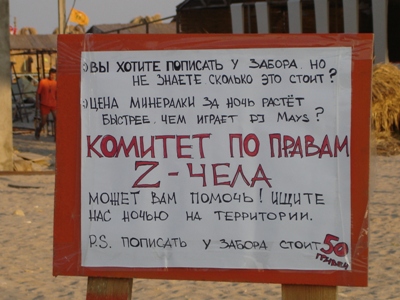 ВЫ ХОТИТЕ ПОПИСАТЬ У ЗАБОРА, НО
НЕ ЗНАЕТЕ СКОЛЬКО ЭТО СТОИТ?
ЦЕНА МИНЕРАЛКИ ЗА НОЧЬ РАСТЁТ
БЫСТРЕЕ, ЧЕМ ИГРАЕТ DJ MAYS?
КОМИТЕТ ПО ПРАВАМ
Z-ЧЕЛА
МОЖЕТ ВАМ ПОМОЧЬ! ИЩИТЕ
НАС НОЧЬЮ НА ТЕРРИТОРИИ.
P.S. ПОПИСАТЬ У ЗАБОРА СТОИТ 50
ГРИВЕН